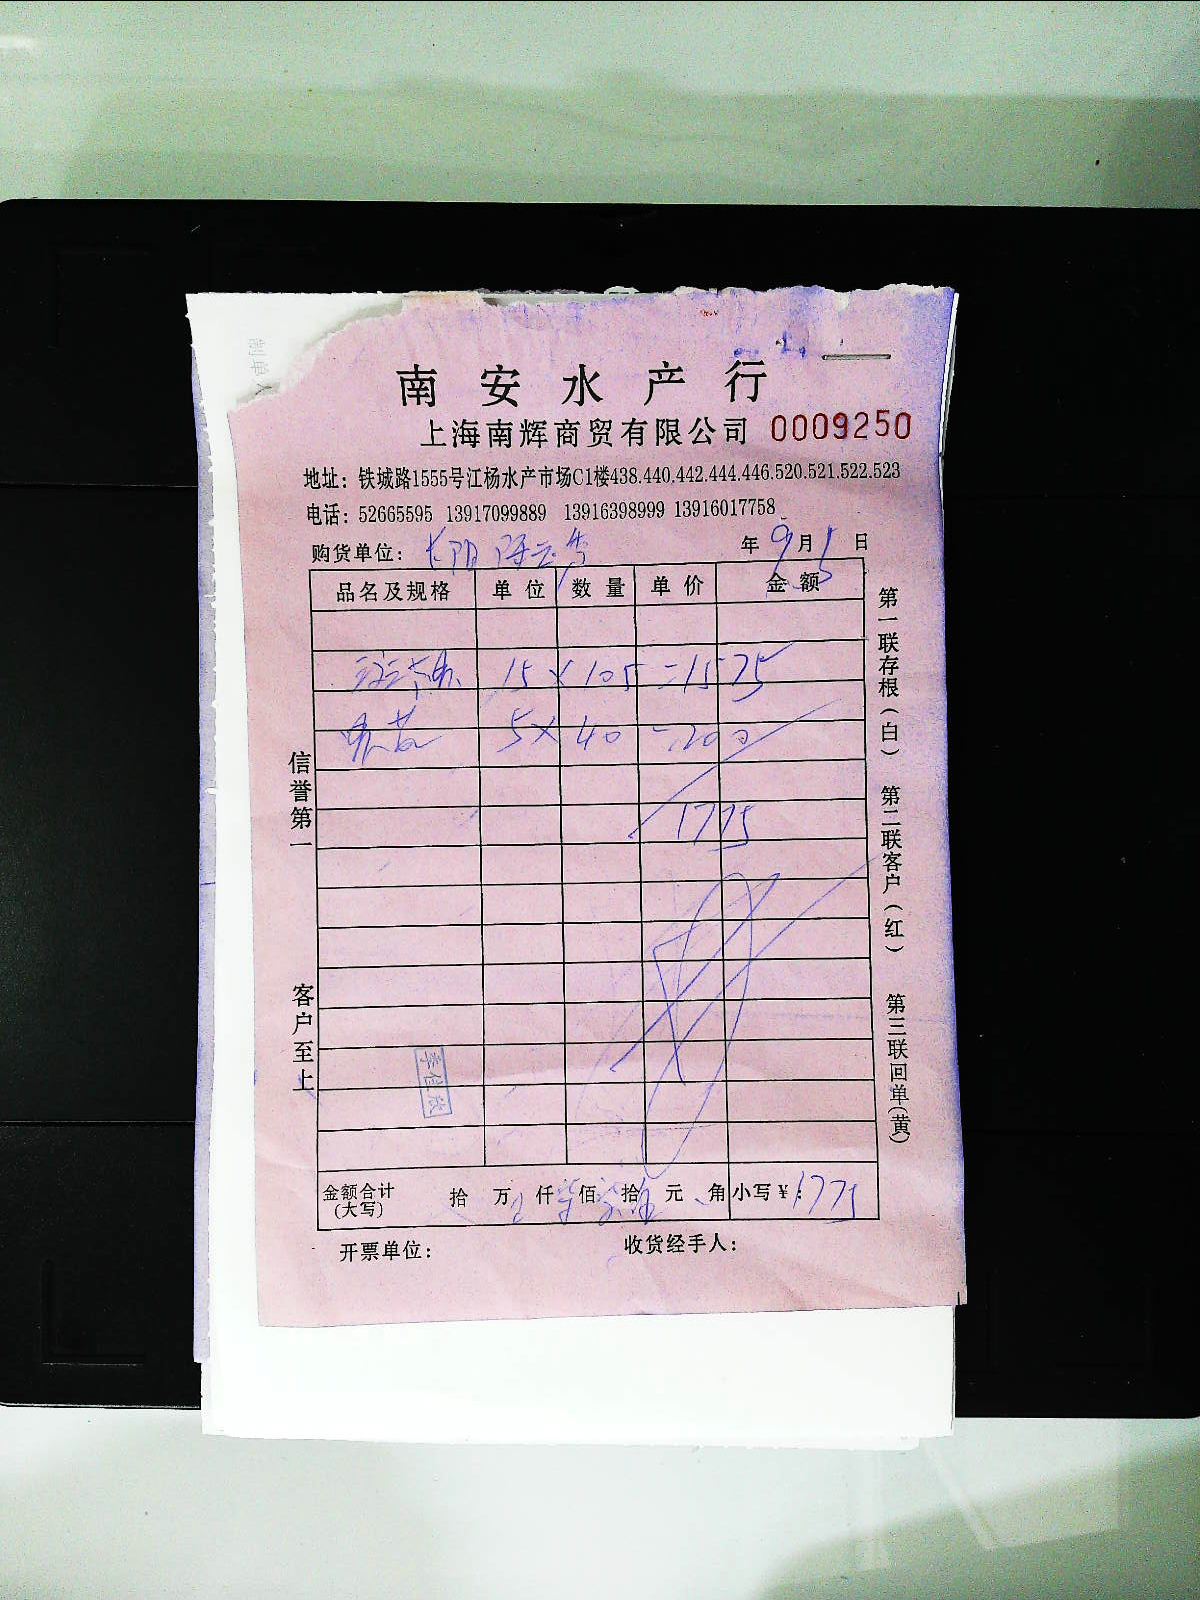 制单人
南安水产行
上海南辉商贸有限公司 0009250
地址：铁城路1555号江杨水产市场C1楼438.440.442.444.446.520.521.522.523
电话：52665595 13917099889 13916398999 13916017758
购货单位： 年 9月5日
品名及规格 单位 数量 单价 金额
15 × 105 =1575
5× 40 =200
1775
信誉第一
客户至上
第一联存根（白）
第二联客户（红）
第三联回单（黄）
李佳欣
金额合计（大写） 拾 万 仟 佰 拾 元 角 小写¥：1775
开票单位： 收货经手人：